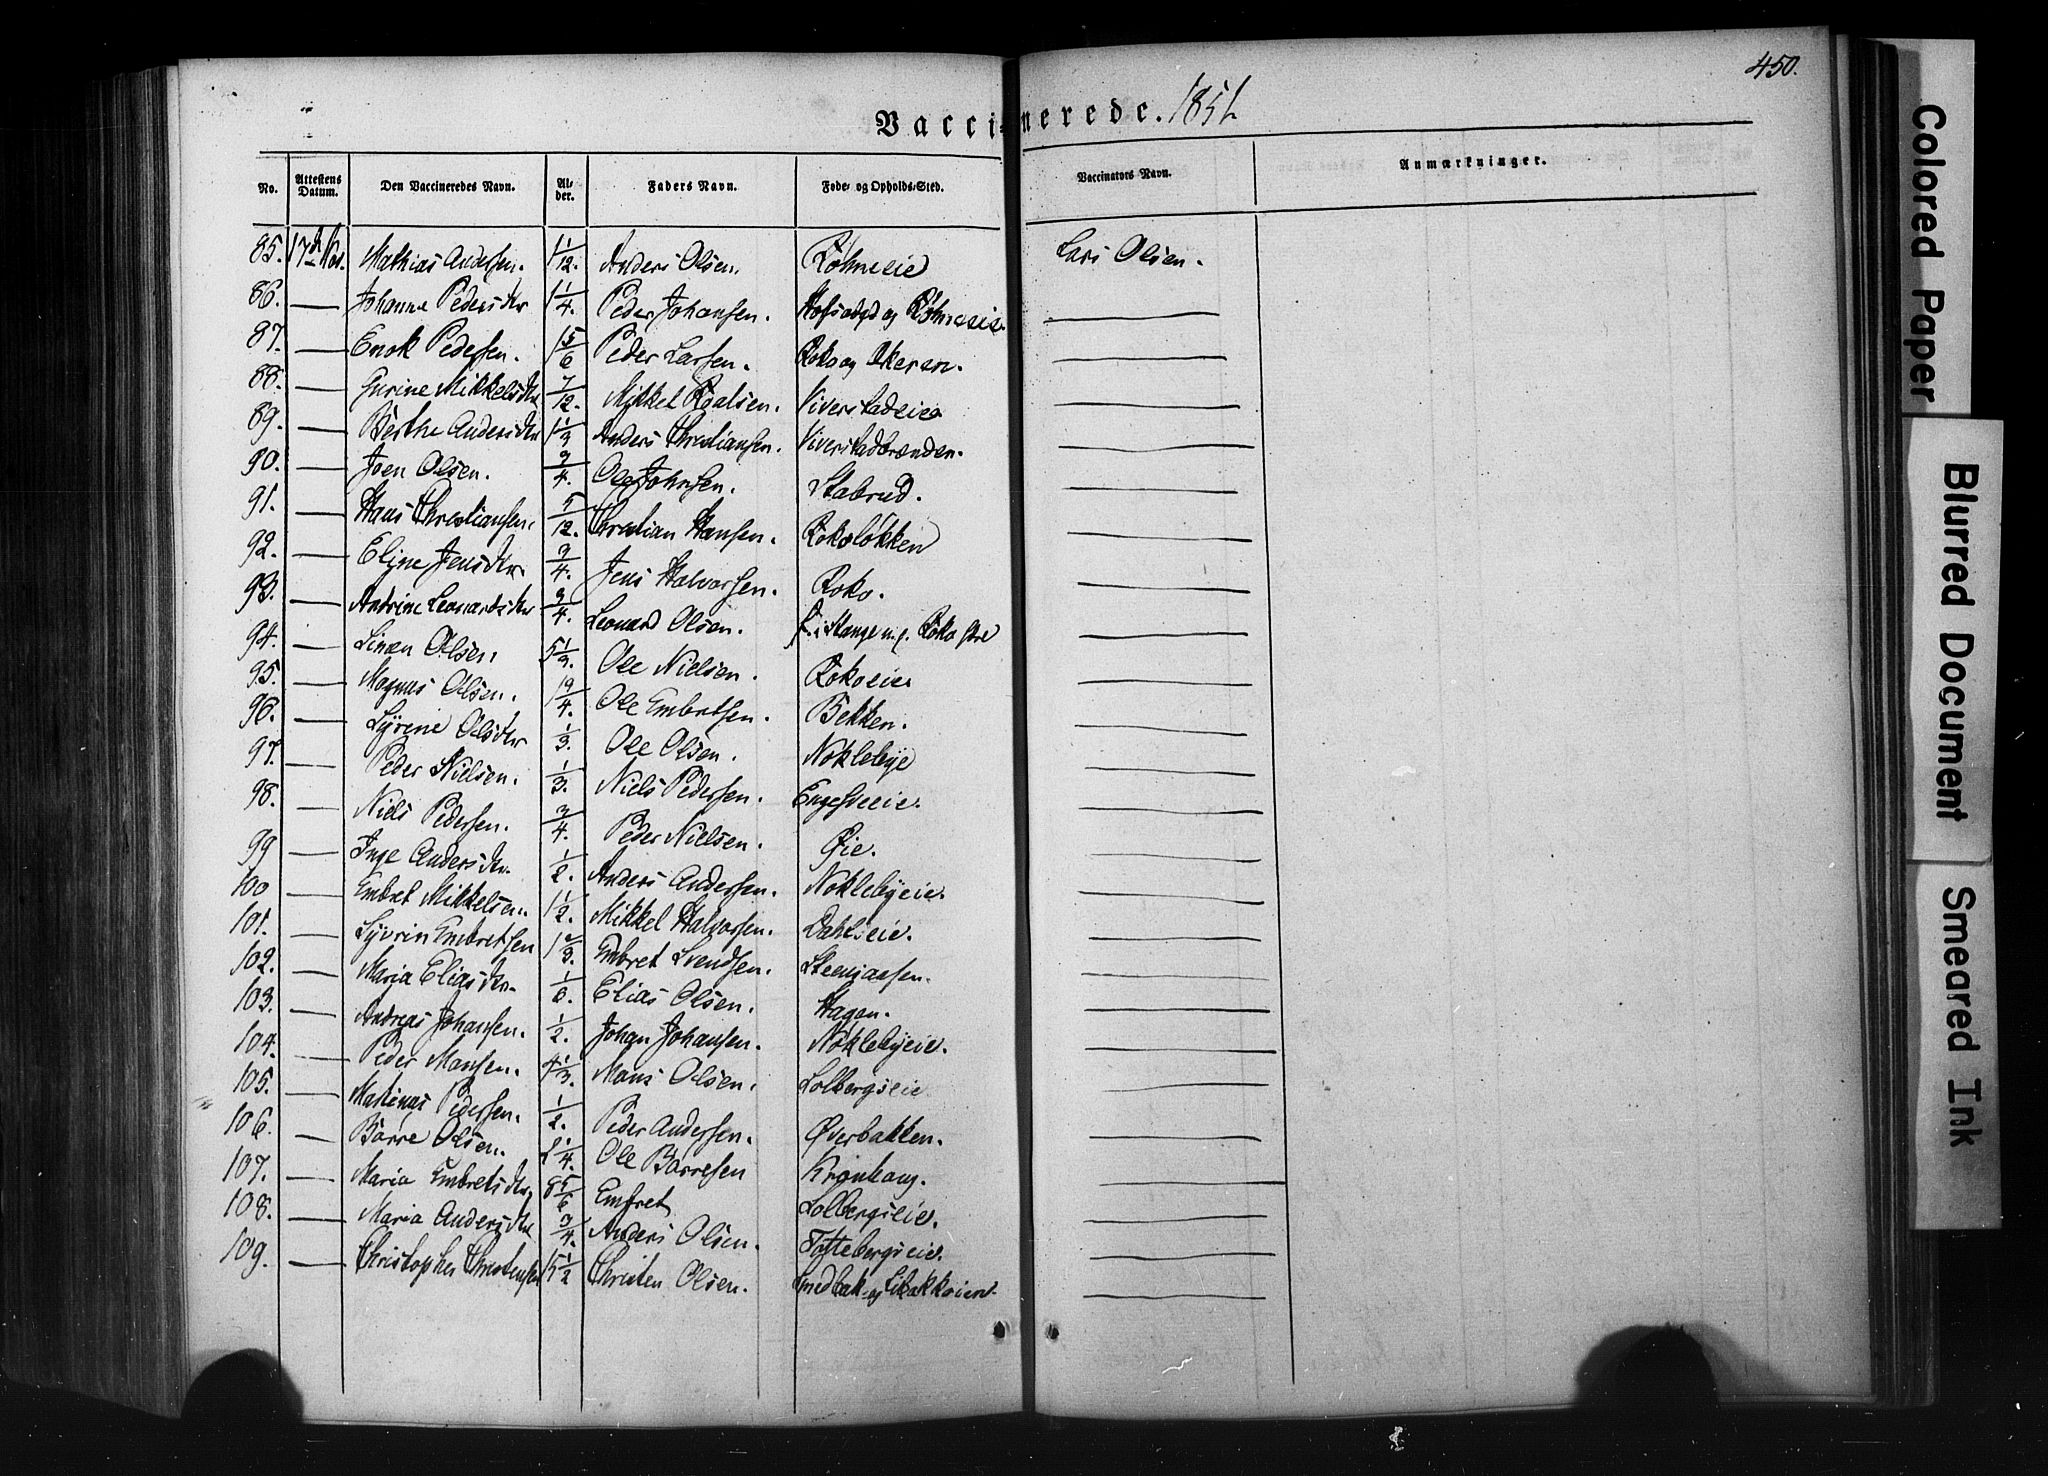 450.
Vaccinerede. 1851
No. Attestens Datum. Den Vaccineredes Navn. Alder. Faders Navn. Føde- og Opholds-Sted. Vaccinators Navn. Anmærkninger.
85. 17de Nov. Mathias Andersen. 1 1/12. Anders Olsen. Røhneeie Lars Olsen.
86. — Johanne Pedersdtr 1 1/4. Peder Johansen. og Røhneeie —
87. — Enok Pedersen. 1 5/6 Peder Larsen. Roko og —
88. — Gurine Mikkelsdtr 7/12. Mikkel Roalsen. Viverstadeie —
89. — Berthe Andersdtr 1 1/3 Anders Christiansen. Viverstadbrænden. —
90. — Joen Olsen. 3/4. Ole Johnsen. Stabrud. —
91. — Hans Christiansen. 5/12. Christian Hansen. Rokoløkken —
92. — Eline Jensdtr 3/4. Jens Halvorsen. Roko. —
93. — Andrine Leonardsdtr 3/4. Leonard Olsen. f. i Stange Roko —
94. — Linæn Olsen. 5 1/3. Ole Nielsen. Rokoeie —
95. — Magnus Olsen. 1 3/4. Ole Embretsen. Bekken. —
96. — Syvrine Olsdtr 1/3. Ole Olsen. Noklebye —
97. — Peder Nielsen. 1/3. Niels Pedersen. —
98. — Niels Pedersen. 3/4. Peder Nielsen. Øie. —
99 — Inge Andersdtr. 1/2. Anders Andersen. Noklebyeie. —
100 — Embret Mikkelsen. 1 1/2. Mikkel Halvorsen. Dahlseie. —
101. — Syvrin Embretsen 1 2/3. Embret Svendsen. Steensaasen. —
102. — Maria Eliasdtr. 1/6. Elias Olsen. Hagen. —
103. — Andreas Johansen. 1/2. Johan Johansen. Noklebyeie. —
104. — Peder Mansen. 4 1/3. Mans Olsen. Lolbergseie. —
105. — Matinus Pedersen. 1/2. Peder Andersen. Øverbakken. —
106. — Børre Olsen. 2 1/4. Ole Børresen Kronhaug. —
107. — Maria Embretsdtr. 8 5/6 Embret Lolbergseie. —
108. — Maria Andersdtr 3/4. Anders Olsen. Toftebergseie. —
109. — Christopher Christensen 15 1/2 Christen Olsen. Smedbak. og —
Colored Paper
Blurred Document
Smeared Ink